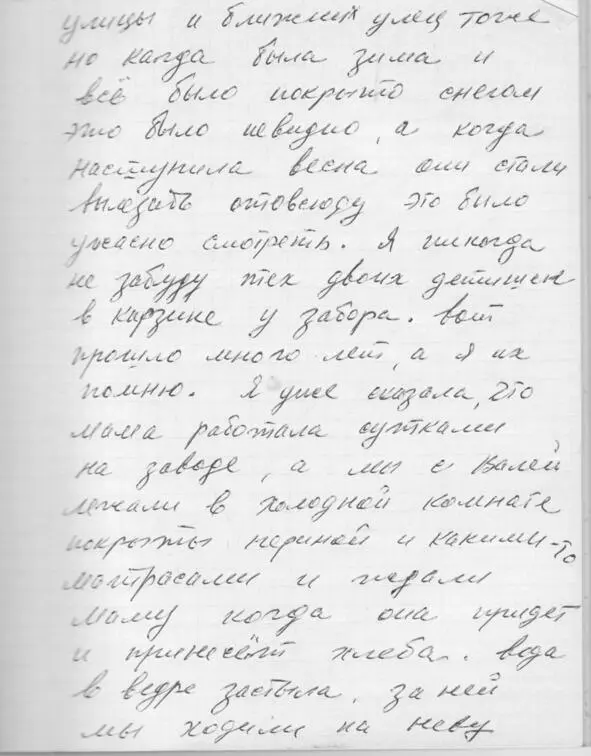 улицы и ближних улец тоже
но когда была зима и
всё было покрыто снегом
это было невидно, а когда
наступила весна они стали
вылазить отовсюду это было
ужасно смотреть. Я никогда
не забуду тех двоих детишек
в карзине у забора. Вот
прошло много лет, а я их
помню. Я уже сказала, что
мама работала сутками
на заводе, а мы с Валей
лежали в холодной комнате
покрыты периной и какими-то
матрасами и ждали
маму когда она придет
и принесёт хлеба. Вода
в ведре застыла, за ней
мы ходили на неву